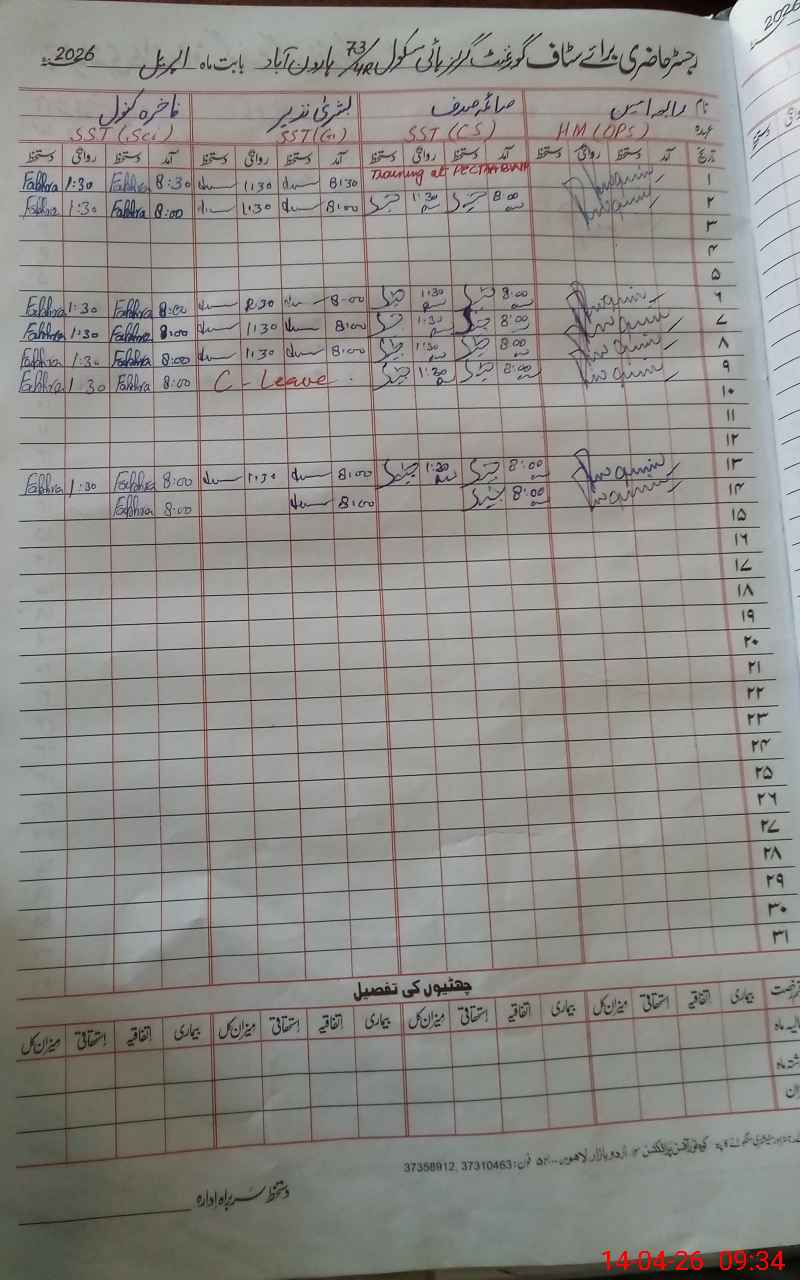 رجسٹر حاضری برائے سٹاف گورنمنٹ گرلز ہائی سکول 73/4R ہارون آباد بابت ماہ اپریل 2026
نام رابعہ صائمہ صدف بشریٰ نذیر فاخرہ کنول
عہدہ HM (OPS) SST (CS) SST SST (Sci)
تاریخ آمد دستخط روانگی دستخط آمد دستخط روانگی دستخط آمد دستخط روانگی دستخط آمد دستخط روانگی دستخط
۱ Training at 8:30 1:30 8:30 Fakhra 1:30 Fakhra
۲ 8:00 1:30 8:00 1:30 8:00 Fakhra 1:30 Fakhra
۳
۴
۵
۶ 8:00 1:30 8:00 8:00 Fakhra 1:30 Fakhra
۷ 8:00 1:30 8:00 1:30 8:00 Fakhra 1:30 Fakhra
۸ 8:00 1:30 8:00 1:30 8:00 Fakhra 1:30 Fakhra
۹ 8:00 1:30 C - Leave 8:00 Fakhra 1:30 Fakhra
۱۰
۱۱
۱۲
۱۳ 8:00 1:30 8:00 1:30 8:00 Fakhra 1:30 Fakhra
۱۴ 8:00 8:00 8:00 Fakhra
۱۵
۱۶
۱۷
۱۸
۱۹
۲۰
۲۱
۲۲
۲۳
۲۴
۲۵
۲۶
۲۷
۲۸
۲۹
۳۰
۳۱
چھٹیوں کی تفصیل
رخصت بیماری اتفاقیہ استحقاقی میزان کل بیماری اتفاقیہ استحقاقی میزان کل بیماری اتفاقیہ استحقاقی میزان کل بیماری اتفاقیہ استحقاقی میزان کل
ماہ
ماہ
اردو بازار لاہور فون: 37310463, 37358912
دستخط سربراہ ادارہ
14-04-26 09:34